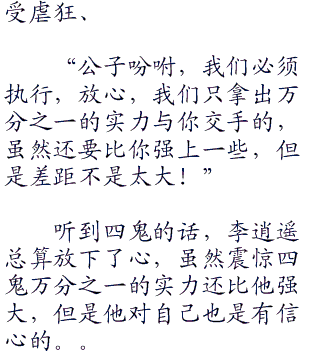 受虐狂、
“公子吩咐，我们必须
执行，放心，我们只拿出万
分之一的实力与你交手的，
虽然还要比你强上一些，但
是差距不是太大！”
听到四鬼的话，李逍遥
总算放下了心，虽然震惊四
鬼万分之一的实力还比他强
大，但是他对自己也是有信
心的。。